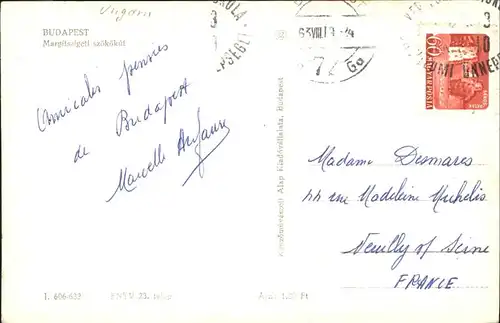 Ungarn
BUDAPEST
Margitszigeti szökőkút
Amicales pensées
de Budapest
Marcelle
Képzőművészeti Alap Kiadóvállalata, Budapest
63 VIII
7
60
MAGYAR POSTA
Madame Desmares
44 rue Madeleine Michelis
Neuilly of Seine
FRANCE
I. 606-632
Ára: 1.20 Ft